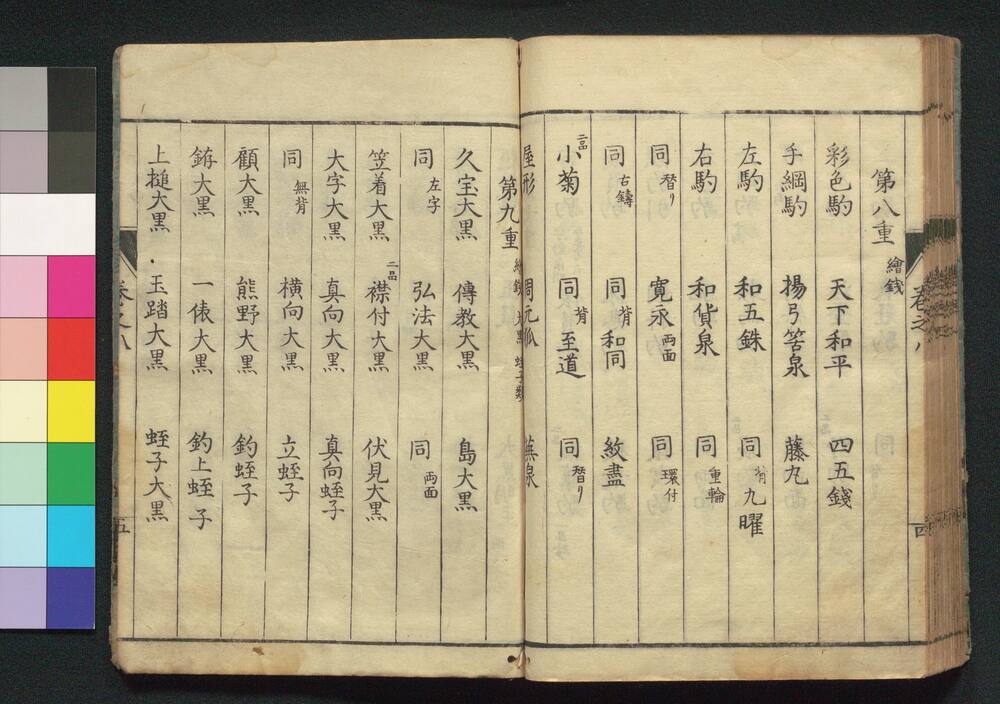 第八重 繪錢
彩色駒 天下和平 四五錢
手綱駒 揚弓筈泉 藤丸
左駒 和五銖 同 背九曜
右駒 和貨泉 同 重輪
同 替り 寛永 両面 同 環付
同 右鑄 同 背和同 紋盡
二品 小菊 同 背至道 同 替り
屋形
第九重 繪錢 大黒 蛭子類
久宝大黒 傳教大黒 島大黒
同 左字 弘法大黒 同 両面
笠着大黒 二品 襟付大黒 伏見大黒
大字大黒 真向大黒 真向蛭子
同 無背 横向大黒 立蛭子
顧大黒 熊野大黒 釣蛭子
銹大黒 一俵大黒 釣上蛭子
上搥大黒 玉踏大黒 蛭子大黒
五